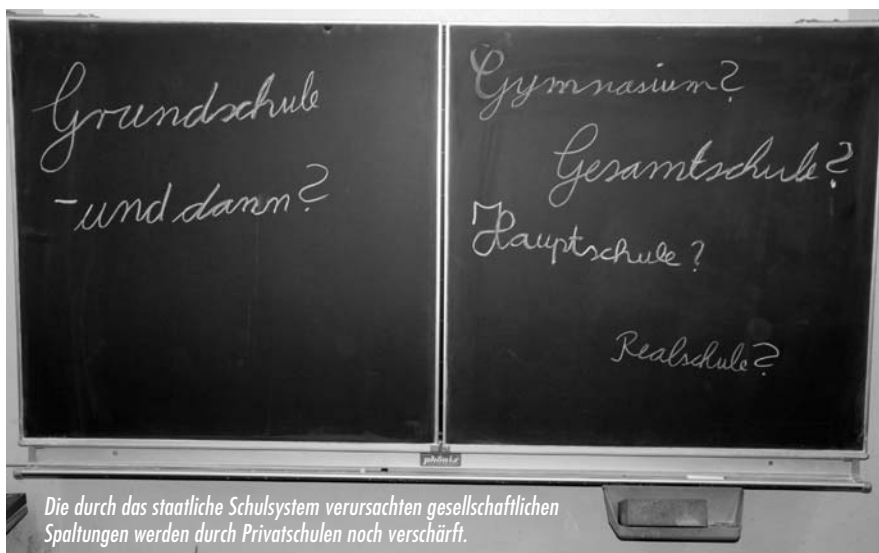 Grundschule
- und dann?
Gymnasium?
Gesamtschule?
Hauptschule?
Realschule?
phönix
Die durch das staatliche Schulsystem verursachten gesellschaftlichen
Spaltungen werden durch Privatschulen noch verschärft.